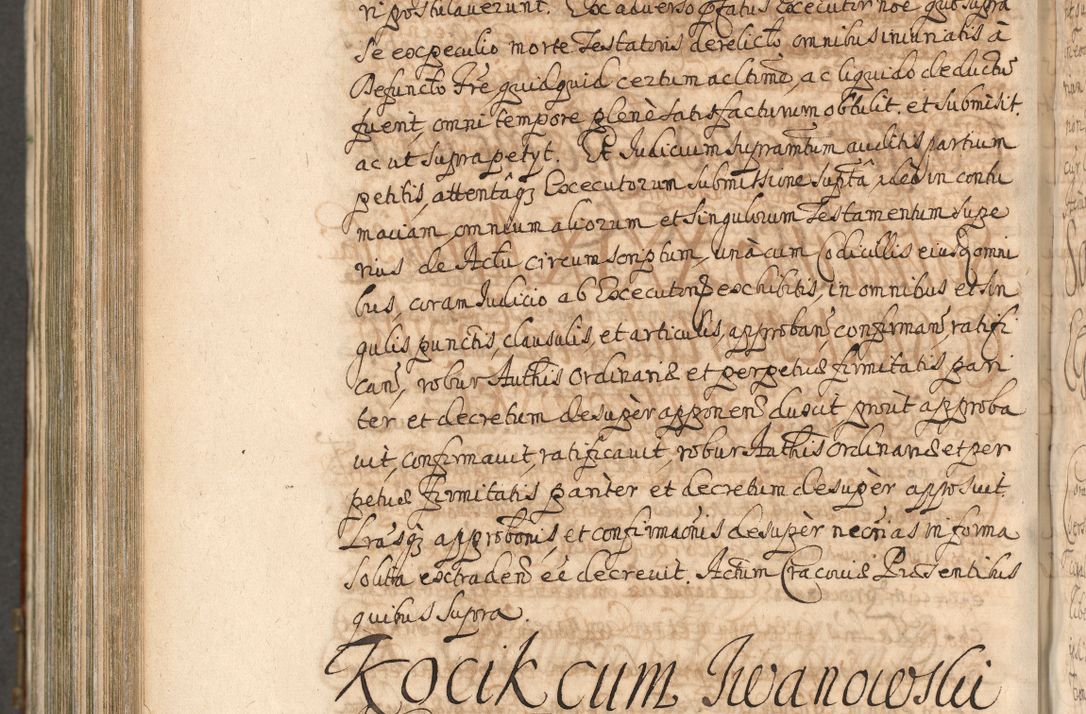 ri postulaverunt. Ex adverso pfatus Executor noe quo supra
se ex peculio morte Testatoris derelicto, omnibus iniuriatis à
Defuncto Fre, quidquid certum ac ltime, ac liquido deductu
fuerit, omni tempore plenè satisfacturum obtulit, et submisit.
ac ut supra petyt. Et Judicium supramtum auditis partium
petitis, attentaq; Executorum submissione supta, ideò in contu
maciam omnium aliorum et singulorum Testamentum supe
rius de Actu circumscriptum, unà cum Codicillis eiusq omni
bus, coram Judicio ab Executor exhibitis, in omnibus et sin
gulis punctis, clausulis, et articulis, approban, confirman, ratifi
can, robur Authis Ordinariæ et perpetuæ firmitatis pari
ter et decretum desupèr apponen duxit, prout approba
uit, confirmauit, ratificauit, robur Authis Ordinariæ et per
petuæ firmitatis paritèr et decretum desupèr apposuit.
Lrasq; approbonis, et confirmaonis desupèr necrias in forma
solita extraden ee decreuit. Actum Cracoviæ Præsentibus
quibus supra.
Kocik cum Iwanowski